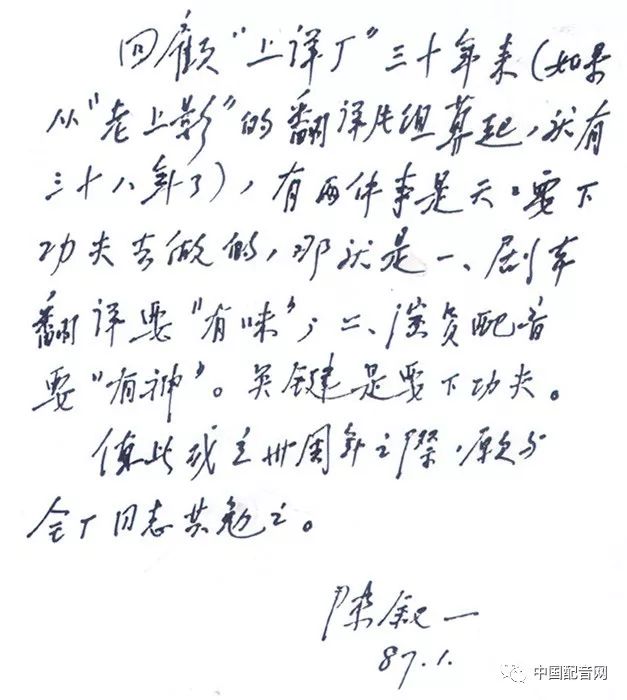 回顾“上译厂”三十年来(如果
从“老上影”的翻译片组算起,就有
三十八年了),有两件事是天天要下
功夫去做的,那就是一、剧本
翻译要“有味”;二、演员配音
要“有神”。关键是要下功夫。
值此成立卅周年之际,愿与
全厂同志共勉之。
陈叙一
87.1.
中国配音网